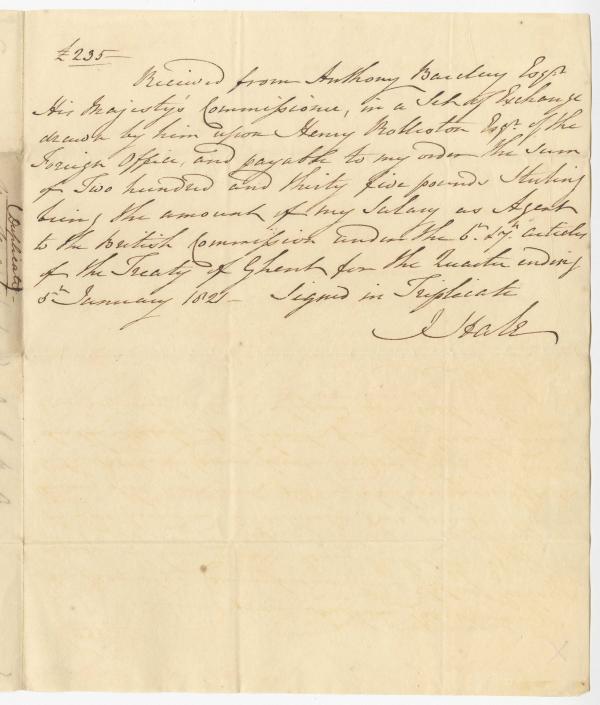 £235—
Received from Anthony Barclay Esqr.
His Majesty's Commissioner, in a Set of Exchange
drawn by him upon Henry Rolleston Esqr. of the
Foreign Office, and payable to my order the Sum
of Two hundred and thirty five pounds Sterling
being the amount of my Salary as Agent
to the British Commission under the 6th & 7th articles
of the Treaty of Ghent for the Quarter ending
5th January 182 — Signed in Triplicate
J Hale
(Duplicate)